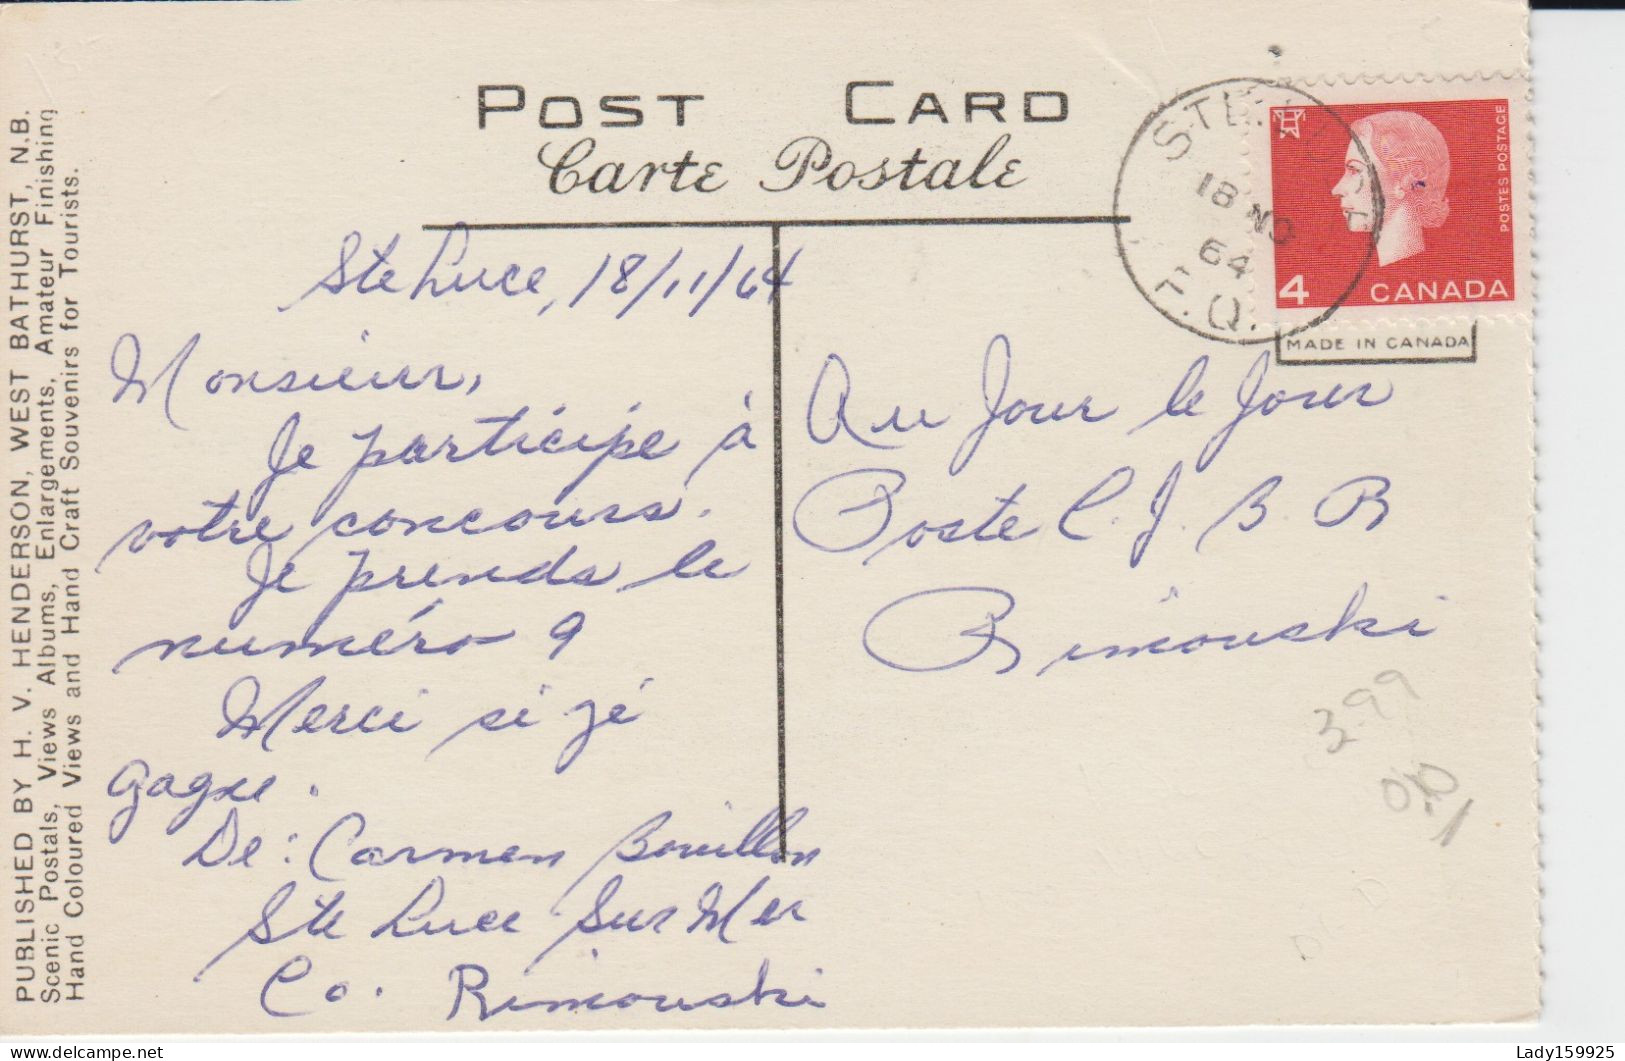 POST CARD
Carte Postale
PUBLISHED BY H. V. HENDERSON, WEST BATHURST, N.B.
Scenic Postals, Views Albums, Enlargements, Amateur Finishing
Hand Coloured Views and Hand Craft Souvenirs for Tourists.
Ste Luce, 18/11/64
Monsieur,
Je participe à
votre concours.
Je prends le
numéro 9
Merci si jé
gagne.
De: Carmen Bouillon
Ste Luce Sur Mer
Co. Rimouski
18 NO
64
P.Q.
4 CANADA
POSTES POSTAGE
MADE IN CANADA
Au Jour le Jour
Poste C. J. B R
Rimouski
3.99
delcampe.net
Lady159925